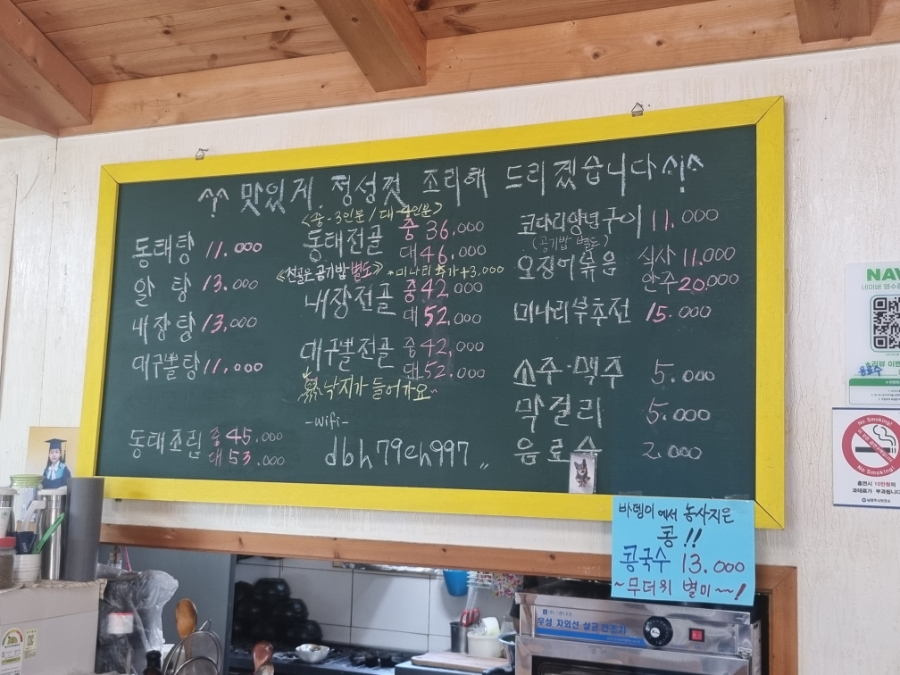 ^^ 맛있게 정성껏 조리해 드리겠습니다 ^!^
동태탕 11.000
알 탕 13.000
내장탕 13.000
대구뽈탕 11.000
동태조림 중 45.000
대 53.000
<중-3인분/대-4인분>
동태전골 중 36.000
대 46.000
<전골은 공기밥 별도> *미나리추가+3,000
내장전골 중 42.000
대 52.000
대구뽈전골 중 42,000
대 52.000
낙지가 들어가요~
-wifi-
dbh79ch997 〃
코다리양념구이 11.000
(공기밥 별도)
오징어볶음 식사 11,000
안주 20,000
미나리부추전 15.000
소주·맥주 5.000
막걸리 5.000
음료수 2.000
에서 농사지은
콩!!
콩국수 13.000
~무더위 별미~!
NAV
네이버 영수
No Smoking!
No Smoking!
우성 자외선 살균